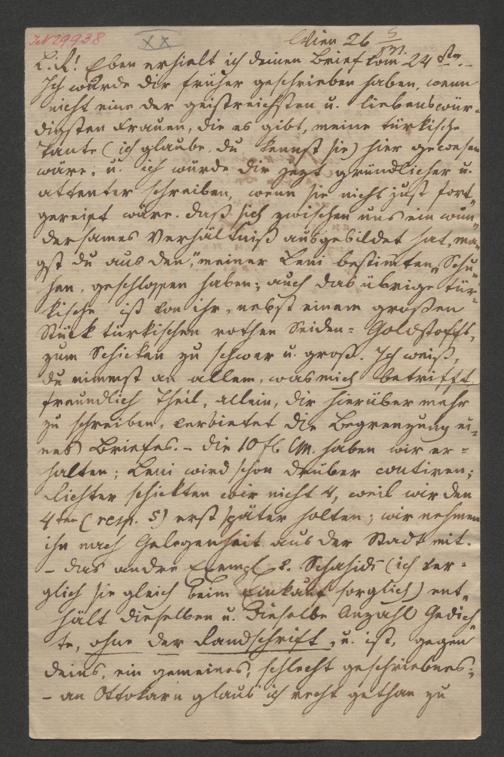 IN 29938 XX Wien 26 5/m.
L. K! Eben erhielt ich deinen Brief vom 24sten.
Ich würde dir früher geschrieben haben, wenn
nicht eine der geistreichsten u. liebenswür-
digsten Frauen, die es gibt, meine türkische
Tante (ich glaube du kennst sie) hier gewesen
wäre, u. ich würde dir jezt gründlicher u.
attenter schreiben, wenn sie nicht just fort
gereist wäre. Daß sich zwischen uns ein wun-
dersames Verhältniß ausgebildet hat, ma-
gst du aus den, "meiner Leni bestimten" Schu-
hen, geschlossen haben; auch das übrige tür-
kische ist von ihr, nebst einem großen
Stück türkischen rothen Seiden-Goldstoffs,
zum Schicken zu schwer u. groß. Ich weiß,
du nimmst an allem, was mich betrifft
freundlich Theil, allein, dir hierüber mehr
zu schreiben, verbietet die Begrenzung ei-
nes Briefes. - Die 10 fl CM. haben wir er-
halten; Leni wird schon drüber contiren;
Lichter schickten wir nicht 4, weil wir den
4ten (resp. 5) erst später holten; wir nehmen
ihn nach Gelegenheit aus der Stadt mit.
- Das andre Exempl. v. Schahidi (ich ver-
glich sie gleich beim Einkauf sorglich) ent-
hält dieselben u. dieselbe Anzahl Gedich-
te, ohne der Randschrift, u. ist, gegen
deins, ein gemeines, schlecht geschriebenes;
- an Ottokarn glaub ich recht gethan zu